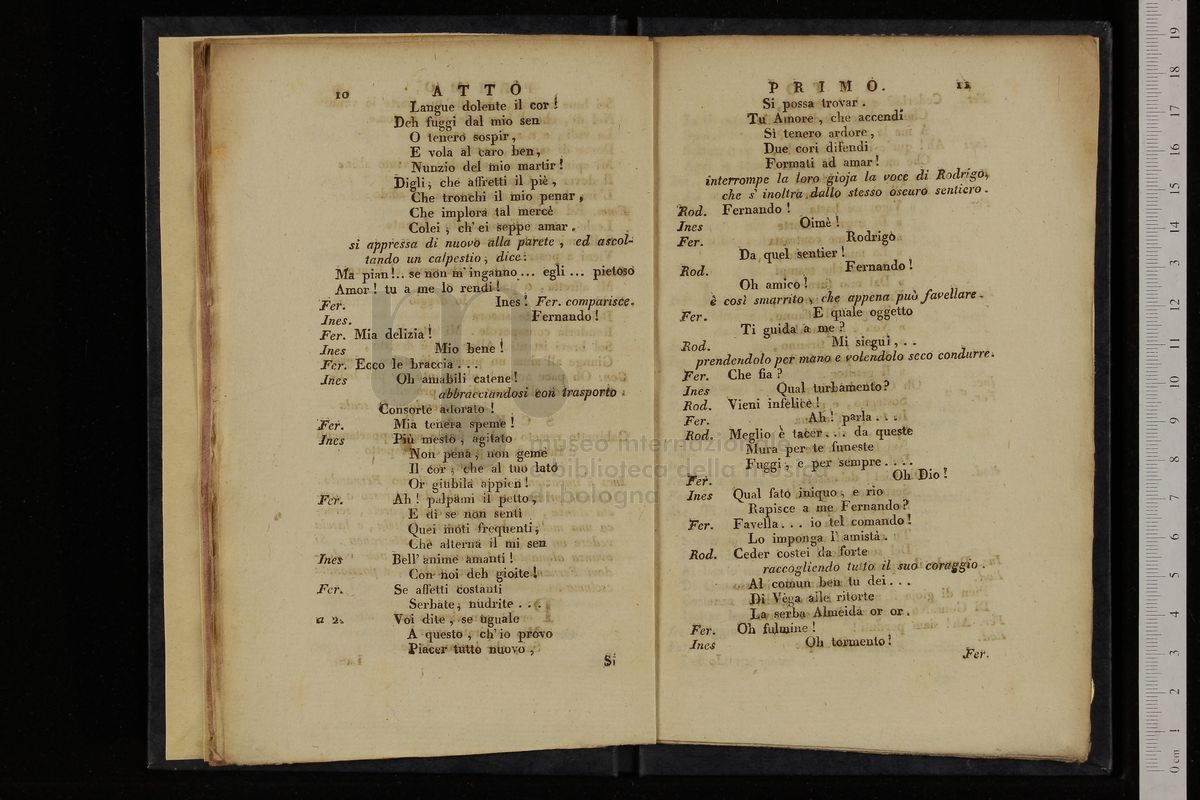 10 ATTO
Langue dolente il cor!
Deh fuggi dal mio sen
O tenero sospir,
E vola al caro ben,
Nunzio del mio martir!
Digli, che affretti il piè,
Che tronchi il mio penar,
Che implora tal mercè
Colei, ch'ei seppe amar.
si appressa di nuovo alla parete, ed ascol-
tando un calpestio, dice:
Ma pian!.. se non m'inganno... egli... pietoso
Amor! tu a me lo rendi!
Fer. Ines! Fer. comparisce.
Ines. Fernando!
Fer. Mia delizia!
Ines Mio bene!
Fer. Ecco le braccia...
Ines Oh amabili catene!
abbracciandosi con trasporto.
Consorte adorato!
Fer. Mia tenera speme!
Ines Più mesto, agitato
Non pena, non geme
Il cor, che al tuo lato
Or giubila appien!
Fer. Ah! palpami il petto,
E dì se non senti
Quei moti frequenti,
Che alterna il mi sen
Ines Bell'anime amanti!
Con noi deh gioite!
Fer. Se affetti costanti
Serbate, nudrite...
a 2. Voi dite, se uguale
A questo, ch'io provo
Piacer tutto nuovo,
Si
PRIMO. 11
Si possa trovar.
Tu Amore, che accendi
Sì tenero ardore,
Due cori difendi
Formati ad amar!
interrompe la loro gioja la voce di Rodrigo,
che s'inoltra dallo stesso oscuro sentiero.
Rod. Fernando!
Ines Oimè!
Fer. Rodrigo
Da quel sentier!
Rod. Fernando!
Oh amico!
è così smarrito, che appena può favellare.
Fer. E quale oggetto
Ti guida a me?
Rod. Mi siegui,..
prendendolo per mano e volendolo seco condurre.
Fer. Che fia?
Ines Qual turbamento?
Rod. Vieni infelice!
Fer. Ah! parla...
Rod. Meglio è tacer... da queste
Mura per te funeste
Fuggi, e per sempre....
Fer. Oh Dio!
Ines Qual fato iniquo, e rio
Rapisce a me Fernando?
Fer. Favella... io tel comando!
Lo imponga l'amistà.
Rod. Ceder costei da forte
raccogliendo tutto il suo coraggio.
Al comun ben tu dei...
Di Vega alle ritorte
La serba Almeida or or.
Fer. Oh fulmine!
Ines Oh tormento!
Fer.
museo internazionale
biblioteca della musica
di bologna
0 cm 1 2 3 4 5 6 7 8 9 10 11 12 13 14 15 16 17 18 19